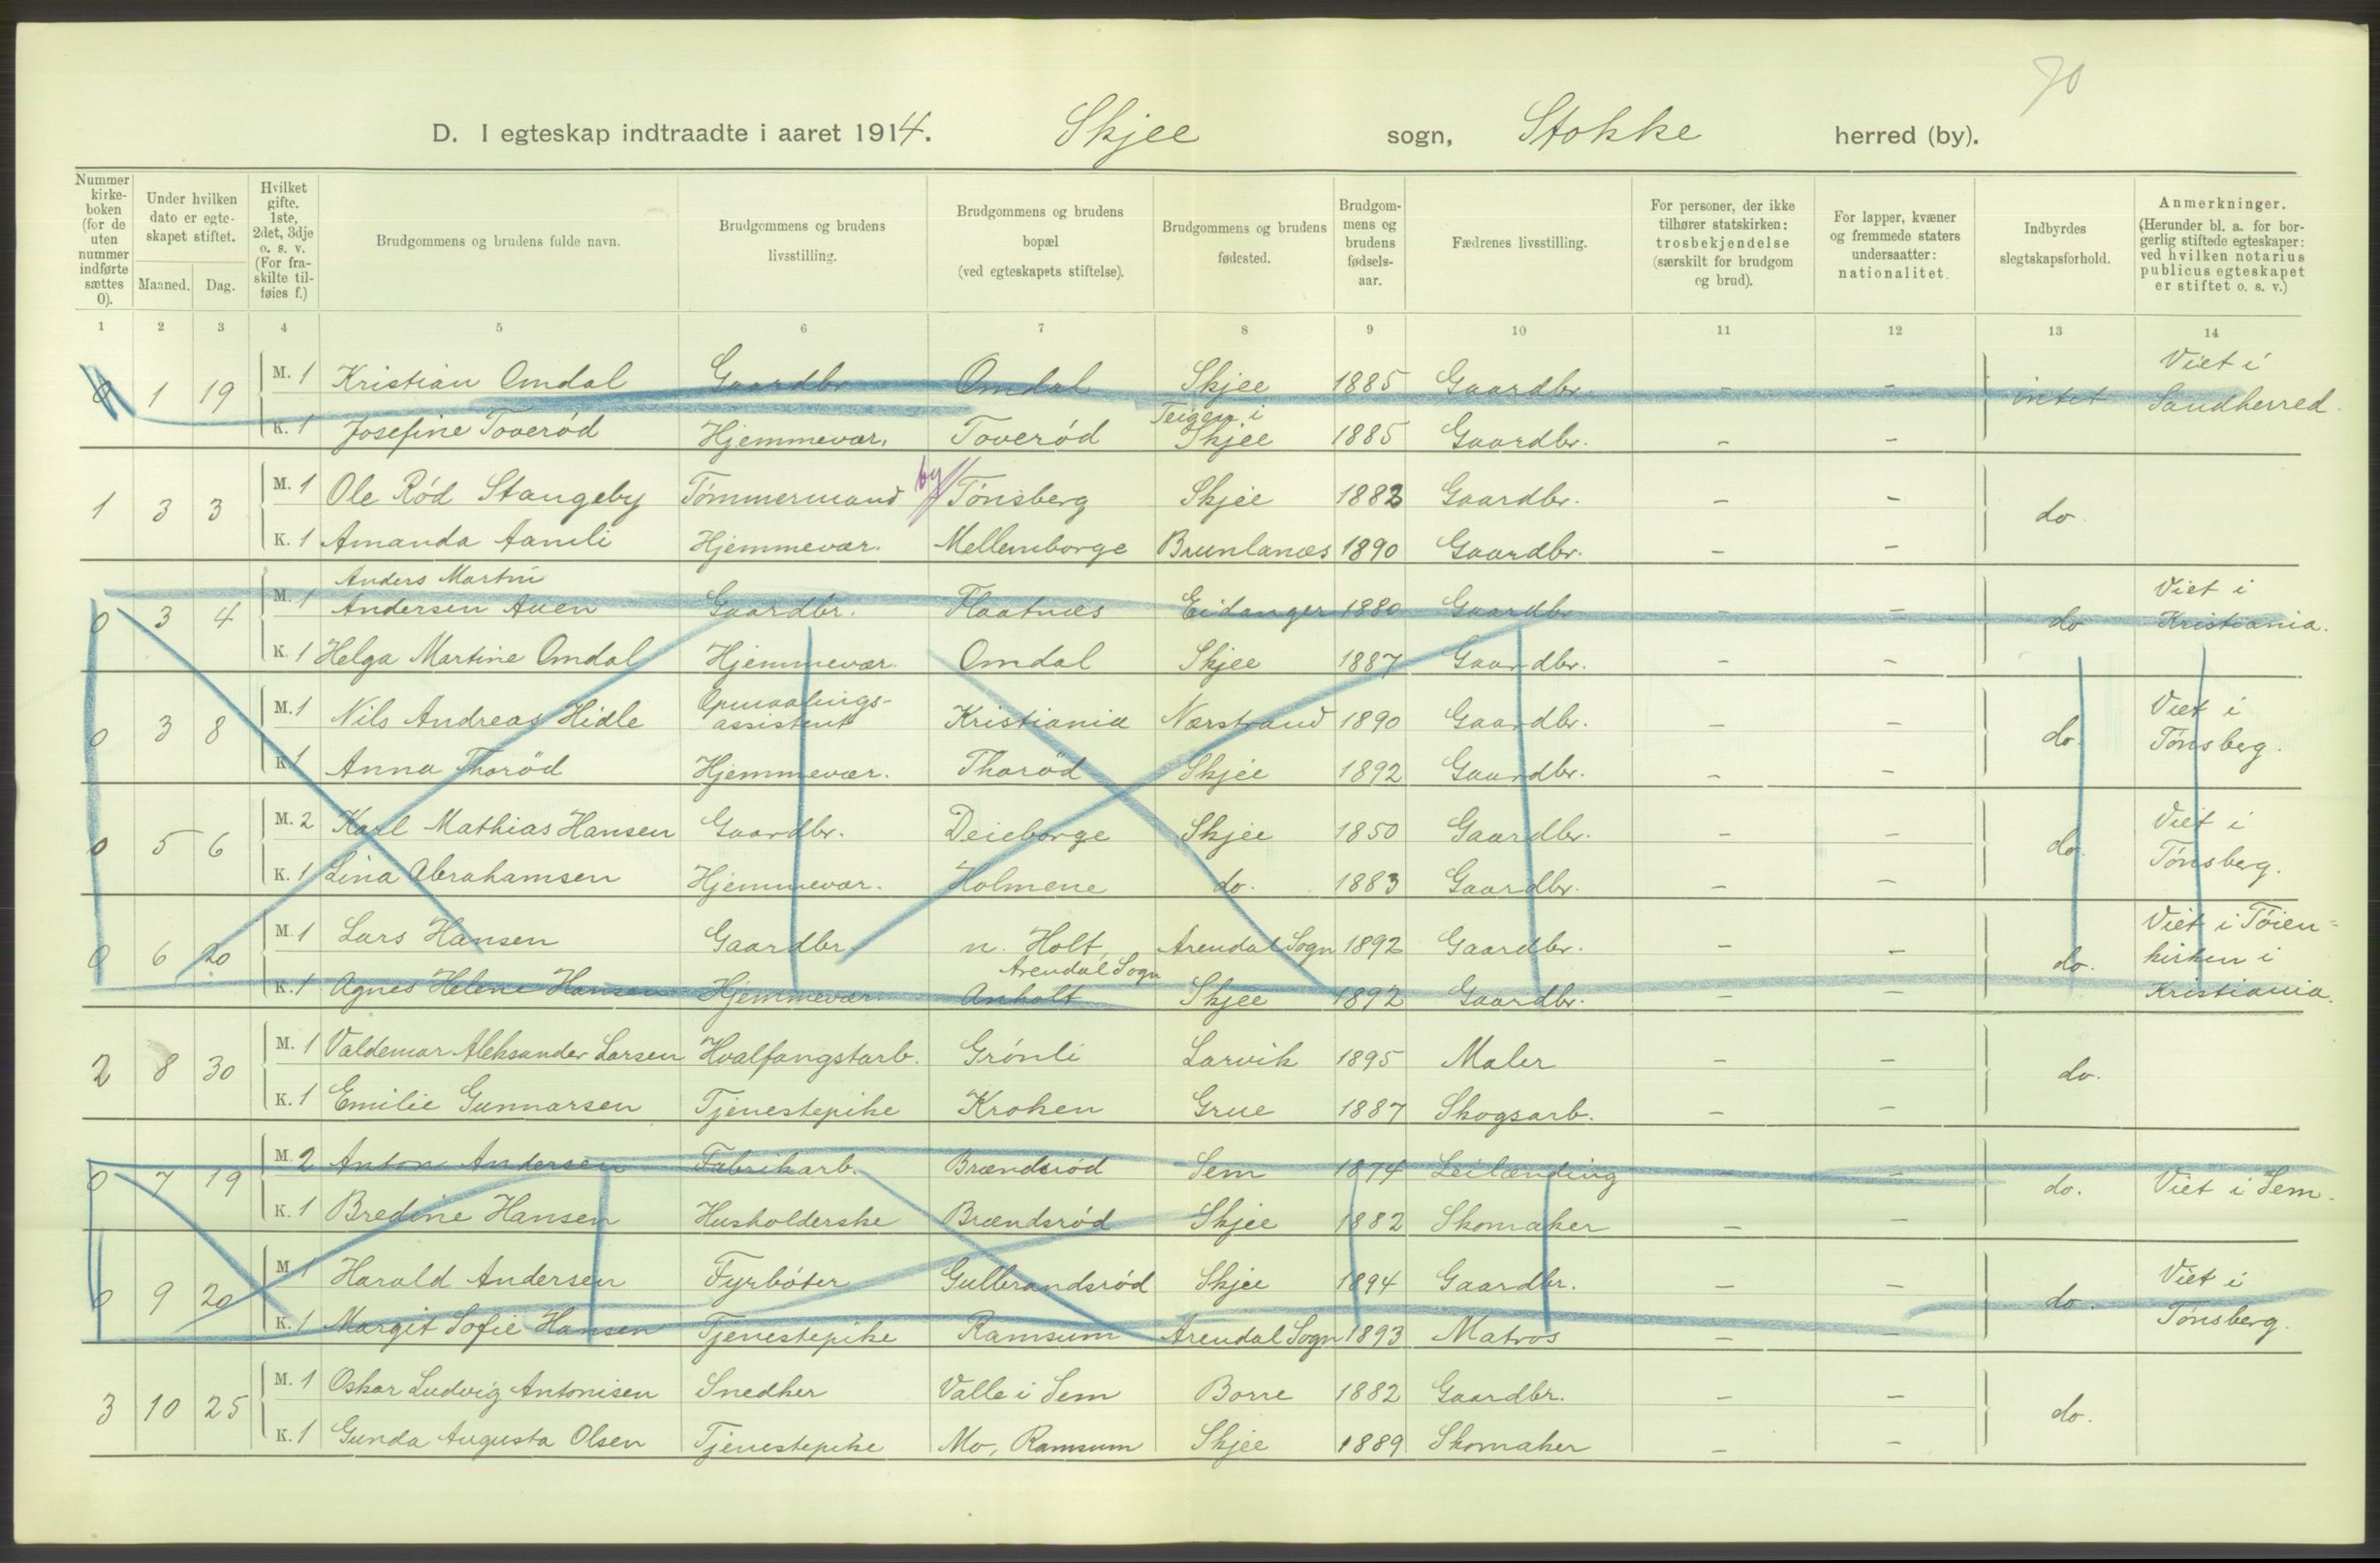 70
D. I egteskap indtraadte i aaret 1914. Skjee sogn, Stokke herred (by).
Nummer kirkeboken (for de uten nummer indførte sættes 0). | Under hvilken dato er egteskapet stiftet. Maaned. Dag. | Hvilket gifte. 1ste, 2det, 3dje o. s. v. (For fraskilte tilføies f.) | Brudgommens og brudens fulde navn. | Brudgommens og brudens livsstilling. | Brudgommens og brudens bopæl (ved egteskapets stiftelse). | Brudgommens og brudens fødested. | Brudgommens og brudens fødselsaar. | Fædrenes livsstilling. | For personer, der ikke tilhører statskirken: trosbekjendelse (særskilt for brudgom og brud). | For lapper, kvæner og fremmede staters undersaatter: nationalitet. | Indbyrdes slegtskapsforhold. | Anmerkninger. (Herunder bl. a. for borgerlig stiftede egteskaper: ved hvilken notarius publicus egteskapet er stiftet o. s. v.)
1 2 3 4 5 6 7 8 9 10 11 12 13 14
0 1 19 M. 1 Kristian Omdal Gaardbr. Omdal Skjee 1885 Gaardbr. – – intet Viet i Sandherred.
K. 1 Josefine Toverød Hjemmevær. Toverød Teigen i Skjee 1885 Gaardbr. – –
1 3 3 M. 1 Ole Rød Stangeby Tømmermand by Tønsberg Skjee 1883 Gaardbr. – – do.
K. 1 Amanda Aamli Hjemmevær. Mellemborge Brunlanæs 1890 Gaardbr. – –
0 3 4 M. 1 Anders Martin Andersen Auen Gaardbr. Flaatnæs Eidanger 1880 Gaardbr – – do Viet i Kristiania.
K. 1 Helga Martine Omdal Hjemmevær. Omdal Skjee 1887 Gaardbr. – –
0 3 8 M. 1 Nils Andreas Hidle Opmaalings-assistent Kristiania Nærstrand 1890 Gaardbr. – – do. Viet i Tønsberg.
K. 1 Anna Thorød Hjemmevær. Thorød Skjee 1892 Gaardbr. – –
0 5 6 M. 2 Karl Mathias Hansen Gaardbr. Deieborge Skjee 1850 Gaardbr. – – do. Viet i Tønsberg.
K. 1 Lina Abrahamsen Hjemmevær. Holmene do. 1883 Gaardbr. – –
0 6 20 M. 1 Lars Hansen Gaardbr. n. Holt, Arendal Sogn Arendal Sogn 1892 Gaardbr. – – do. Viet i Tøien-kirken i Kristiania.
K. 1 Agnes Helene Hansen Hjemmevær. Anholt Skjee 1892 Gaardbr. – –
2 8 30 M. 1 Valdemar Aleksander Larsen Hvalfangstarb. Grønli Larvik 1895 Maler – – do.
K. 1 Emilie Gunnarsen Tjenestepike Kroken Grue 1887 Skogsarb. – –
0 7 19 M. 2 Anton Andersen Fabrikarb. Brændsrød Sem 1874 Leilænding – – do. Viet i Sem.
K. 1 Bredine Hansen Husholderske Brændsrød Skjee 1882 Skomaker – –
0 9 20 M. 1 Harald Andersen Fyrbøter Gulbrandsrød Skjee 1894 Gaardbr. – – do. Viet i Tønsberg.
K. 1 Margit Sofie Hansen Tjenestepike Ramsum Arendal Sogn 1893 Matros – –
3 10 25 M. 1 Oskar Ludvig Antonisen Snedker Valle i Sem Borre 1882 Gaardbr. – – do.
K. 1 Gunda Augusta Olsen Tjenestepike Mo, Ramsum Skjee 1889 Skomaker – –